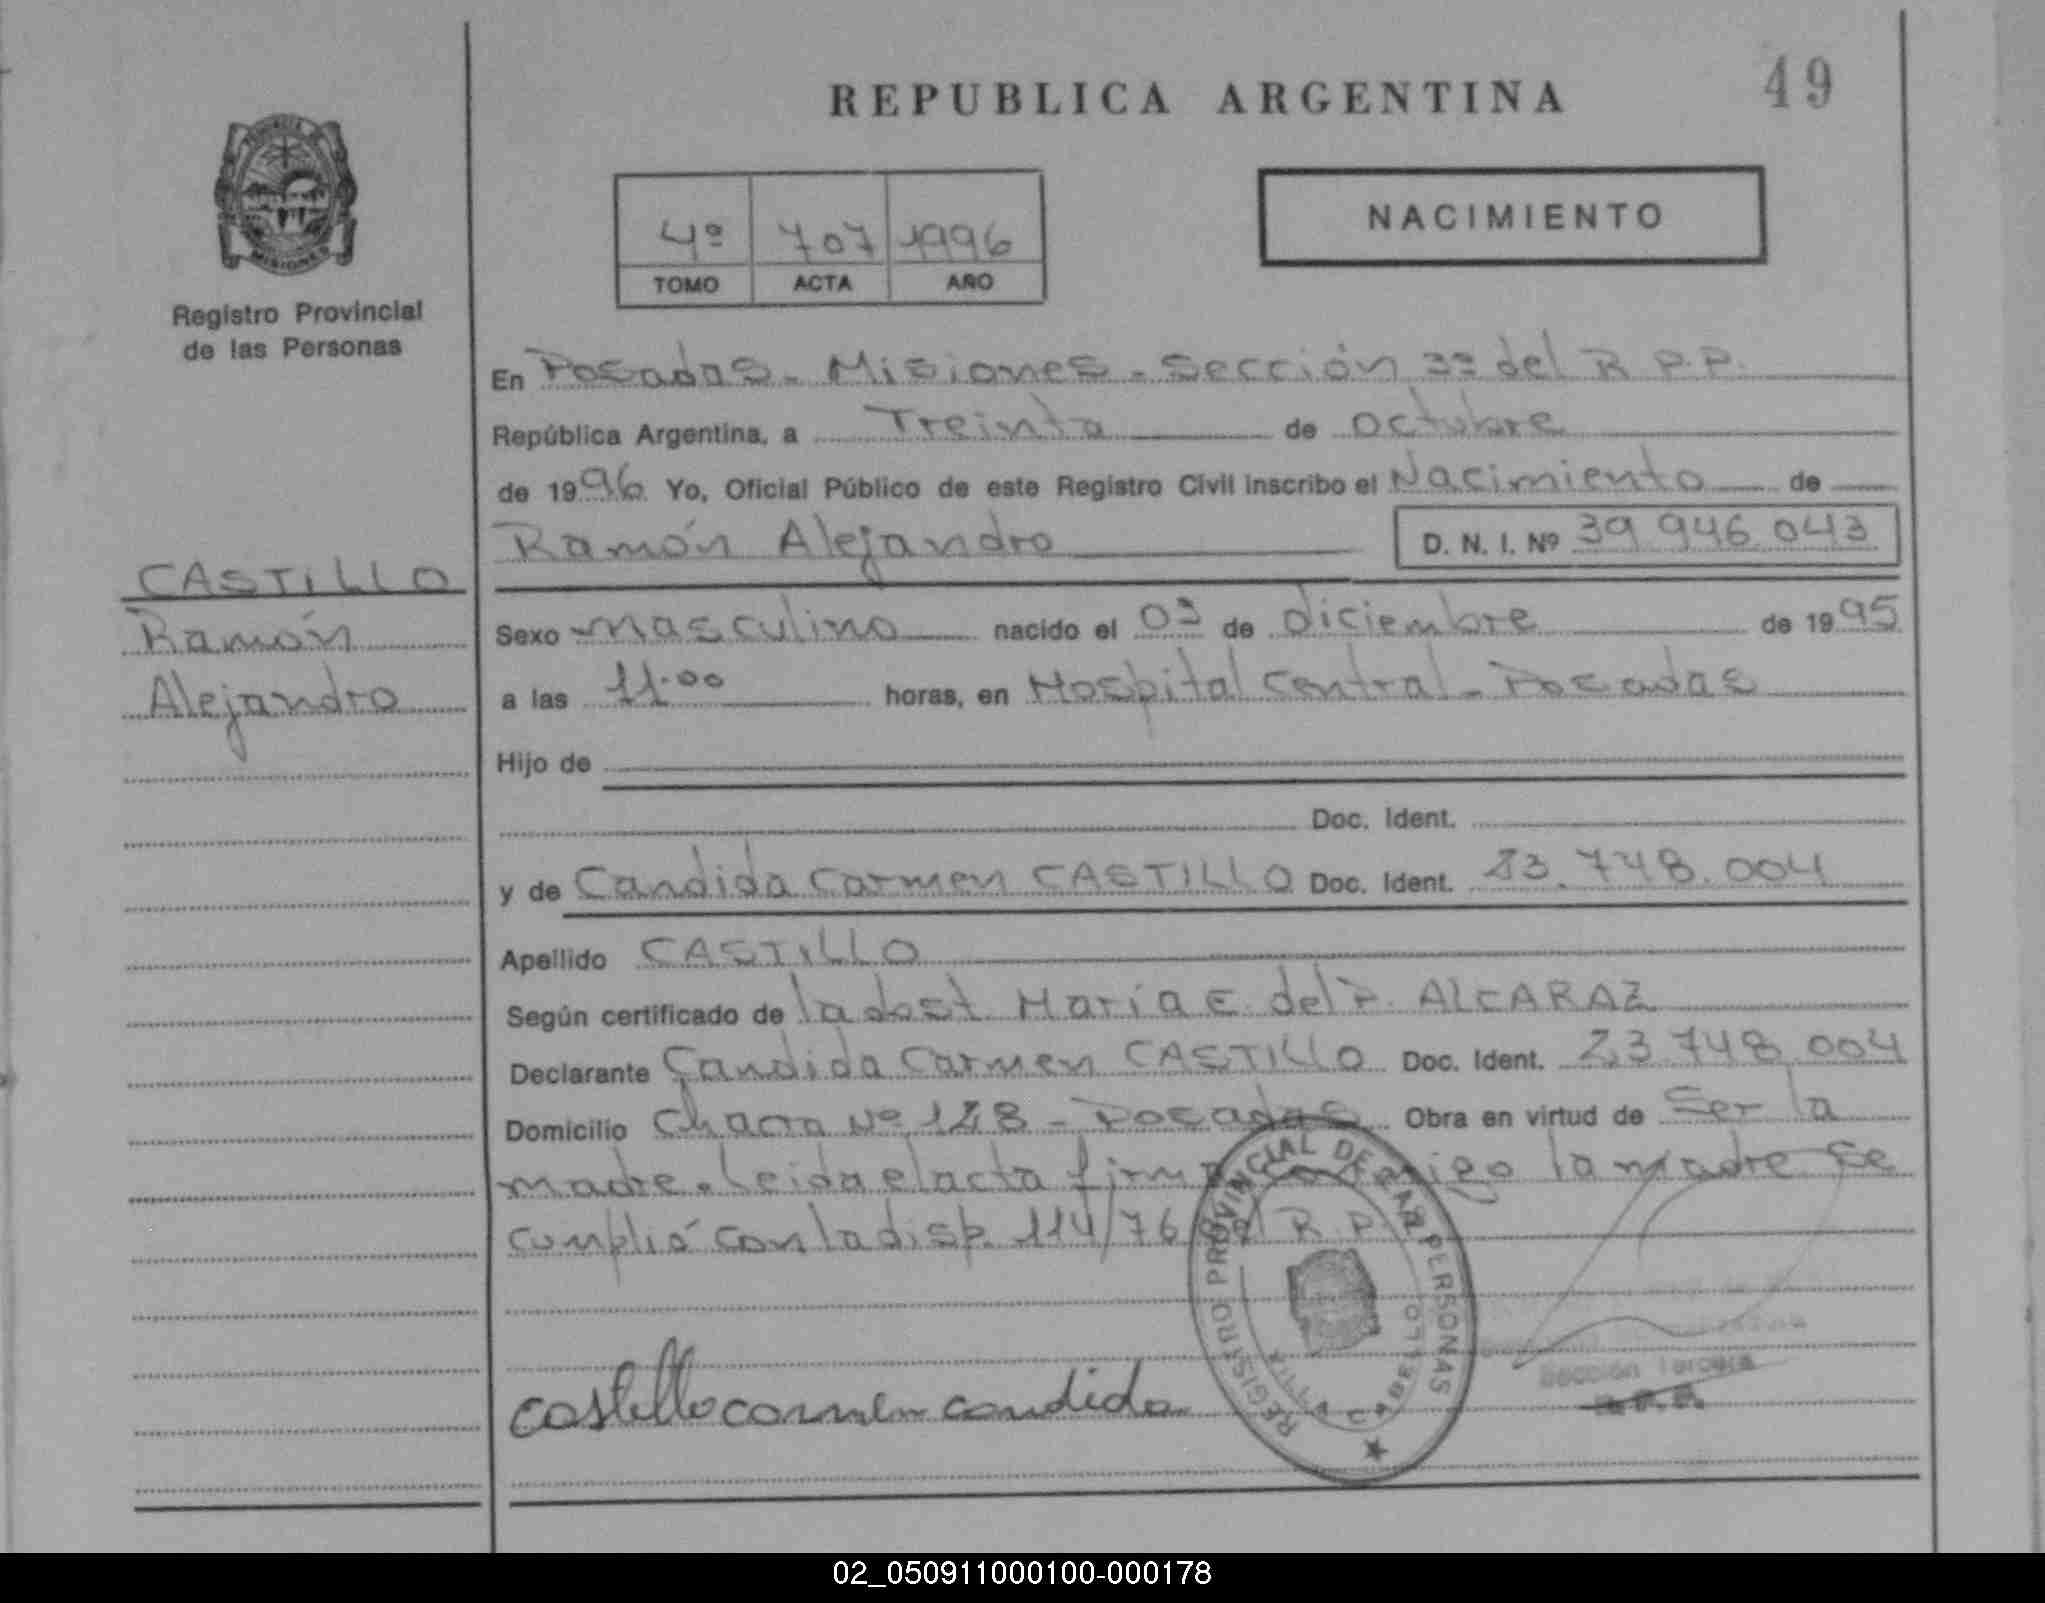 REPUBLICA ARGENTINA
49
4º 707 1996
TOMO ACTA AÑO
NACIMIENTO
MISIONES
Registro Provincial
de las Personas
En Posadas - Misiones - Sección 3ª del R.P.P.
República Argentina, a Treinta de octubre
de 1996 Yo, Oficial Público de este Registro Civil inscribo el Nacimiento de
Ramón Alejandro D. N. I. Nº 39 946 043
CASTILLO
Ramón
Alejandro
Sexo masculino nacido el 03 de diciembre de 1995
a las 11.00 horas, en Hospital Central - Posadas
Hijo de
Doc. Ident.
y de Candida Carmen CASTILLO Doc. Ident. 23.748.004
Apellido CASTILLO
Según certificado de la dost Maria E. del P. ALCARAZ
Declarante Candida Carmen CASTILLO Doc. Ident. 23 748 004
Domicilio Chacra Nº 128 - Posadas Obra en virtud de Ser la
madre. Leida el acta firma la madre se
cumplió con la disp. 114/76 del R.P.P.
castillo carmen candida
REGISTRO PROVINCIAL DE LAS PERSONAS
VILLA CABELLO
Sección Tercera
R.P.P.
02_050911000100-000178